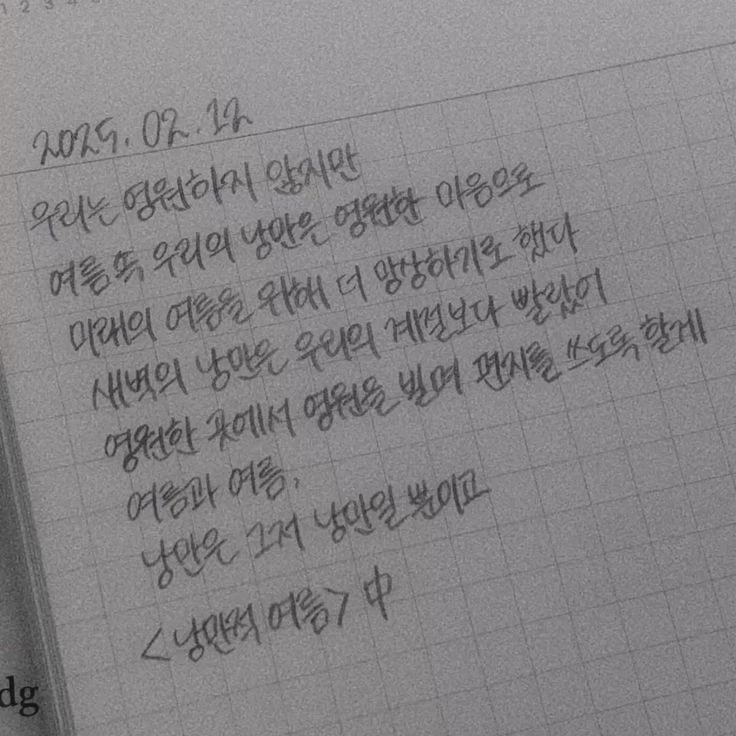 1 2 3 4
2025. 02. 12
우리는 영원하지 않지만
여름 속 우리의 낭만은 영원한 마음으로
미래의 여름을 위해 더 망상하기로 했다
새벽의 낭만은 우리의 계절보다 빨랐어
영원한 곳에서 영원을 빌며 편지를 쓰도록 할게
여름과 여름,
낭만은 그저 낭만일 뿐이고
<낭만적 여름> 中
dg